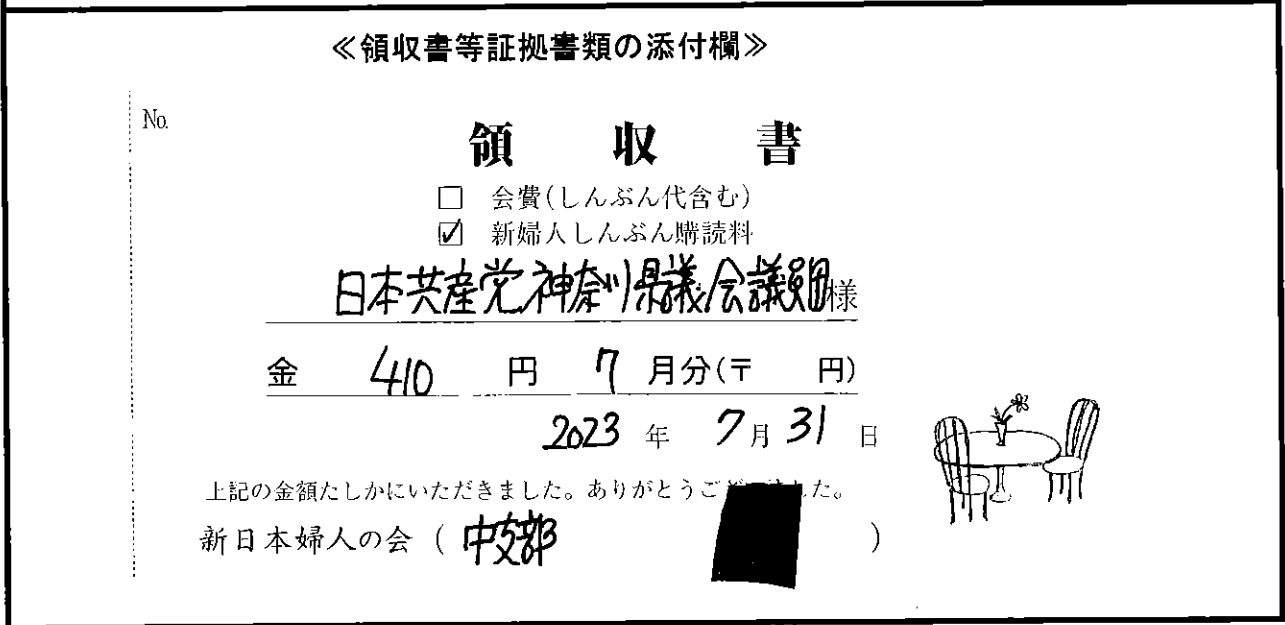 ≪領収書等証拠書類の添付欄≫
No.
領収書
□ 会費(しんぶん代含む)
☑ 新婦人しんぶん購読料
日本共産党神奈川県議会議員団様
金 410 円 7月分(〒 円)
2023年 7月31日
上記の金額たしかにいただきました。ありがとうご した。
新日本婦人の会(中支部 )